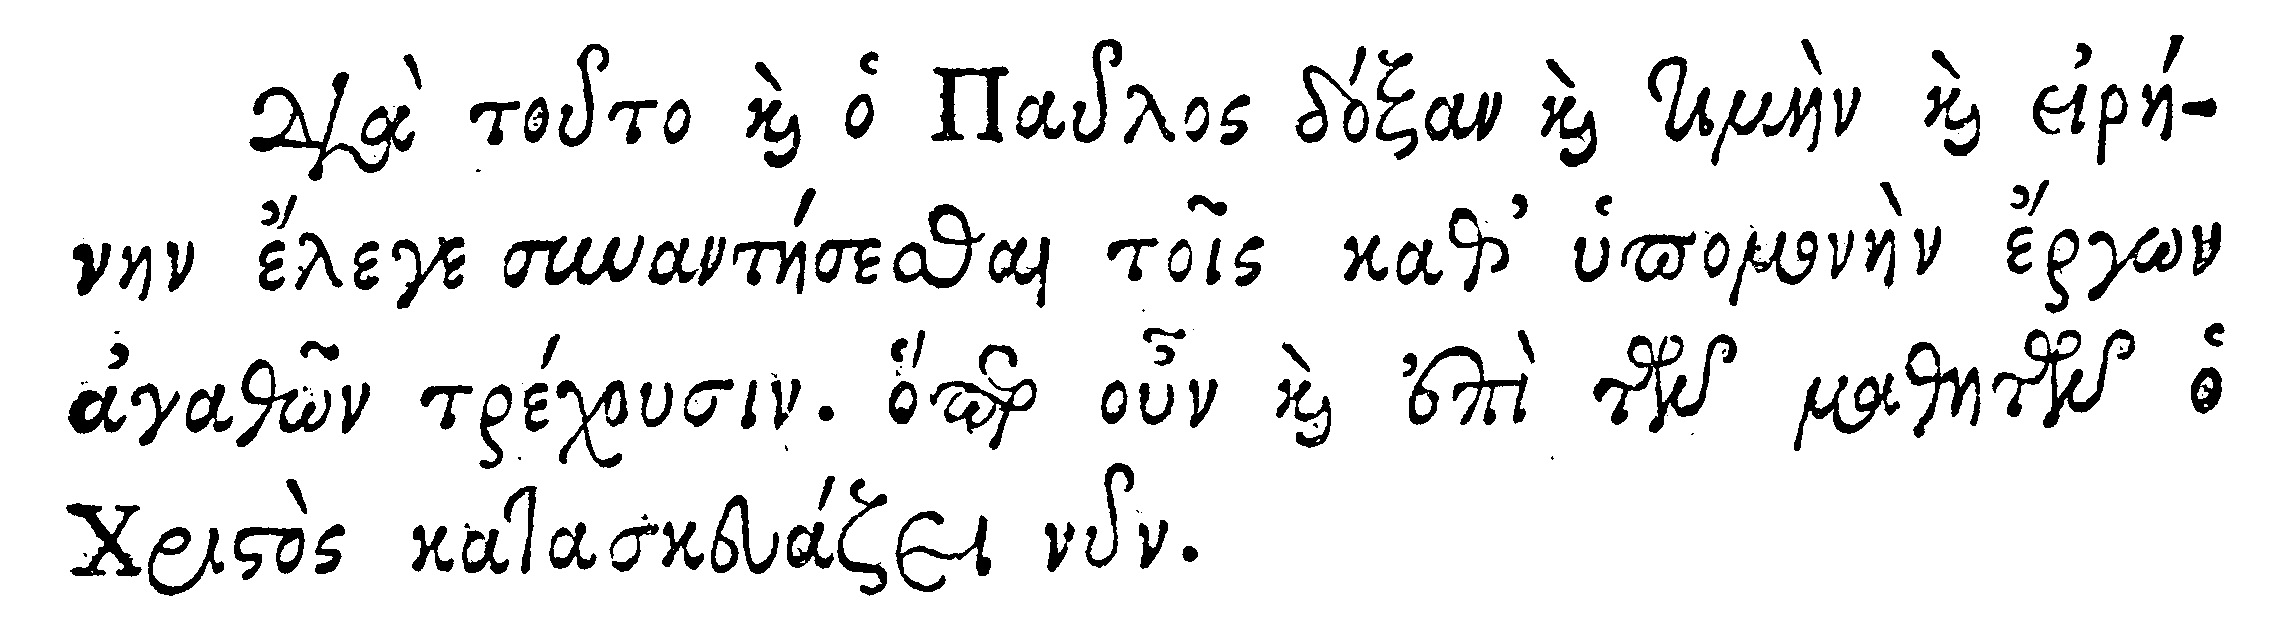 Διὰ τοῦτο καὶ ὁ Παῦλος δόξαν καὶ τιμὴν καὶ εἰρή-
νην ἔλεγε συναντήσεσθαι τοῖς καθ' ὑπομονὴν ἔργων
ἀγαθῶν τρέχουσιν. ὅπερ οὖν καὶ ἐπὶ τῶν μαθητῶν ὁ
Χριστὸς κατασκευάζει νῦν.